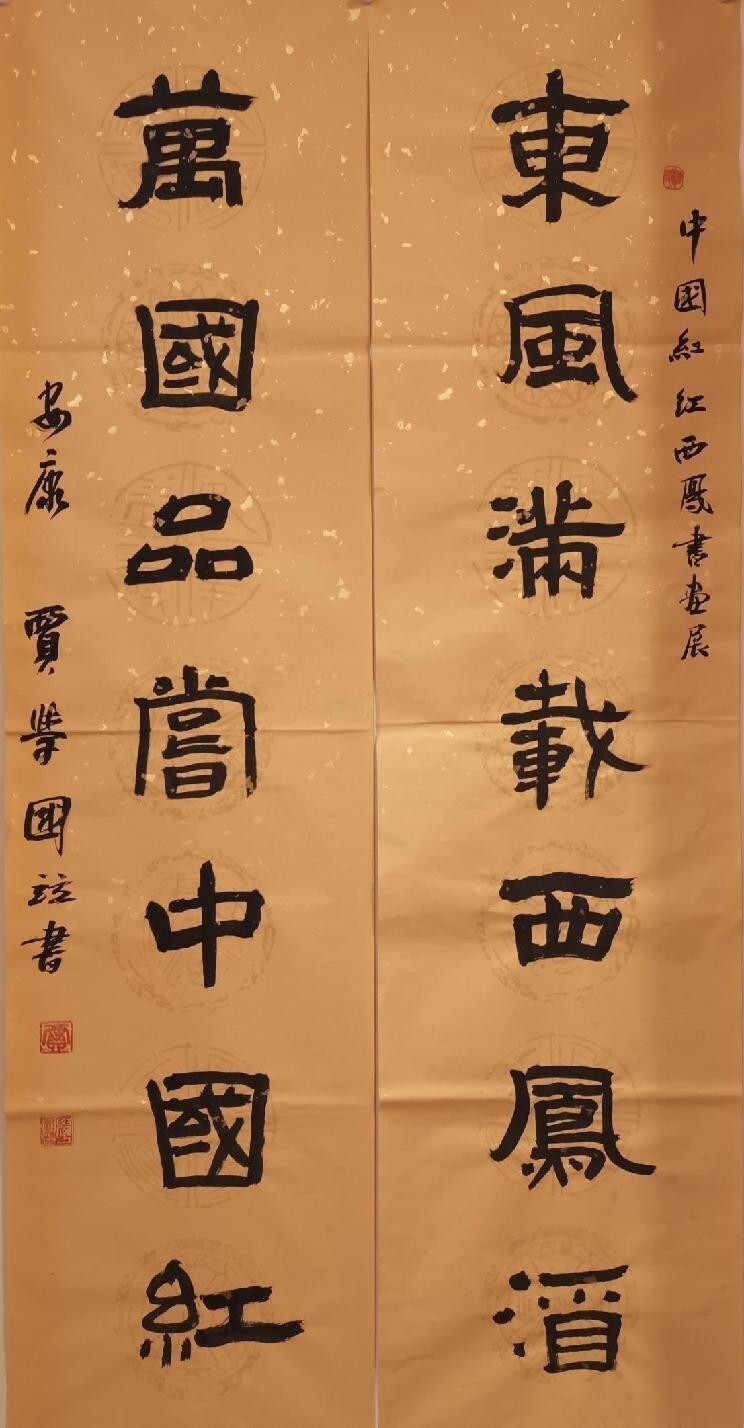 中國紅紅西鳳書畫展
東風滿載西鳳酒
萬國品嘗中國紅
安康 賈學國書